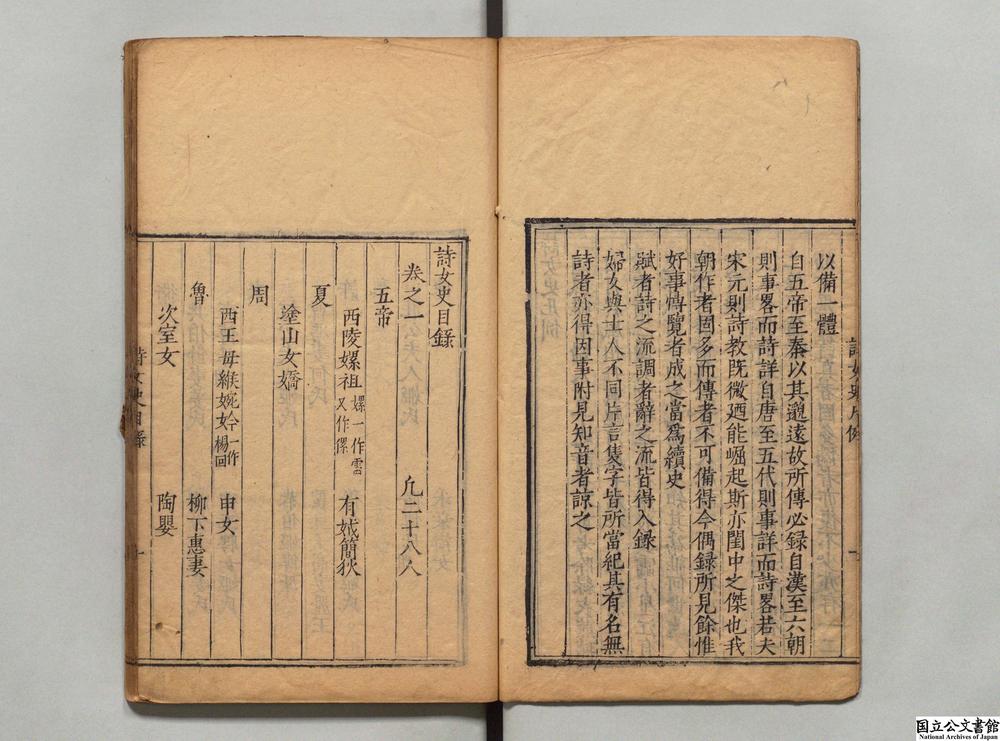 以備一體
自五帝至秦以其邈遠故所傳必録自漢至六朝
則事畧而詩詳自唐至五代則事詳而詩畧若夫
宋元則詩教既微廼能崛起斯亦閨中之傑也我
朝作者固多而傳者不可備得今偶録所見餘惟
好事博覽者成之當爲續史
賦者詩之流調者辭之流皆得入録
婦女與士人不同片言隻字皆所當紀其有名無
詩者亦得因事附見知音者諒之
詩女史目録
卷之一 凡二十八人
五帝
西陵嫘祖 嫘一作雷又作傫 有娀簡狄
夏
塗山女嬌
周
西王母緱婉妗 一作楊回 申女
魯
柳下惠妻
次室女 陶嬰
詩女史目録
国立公文書館
National Archives of Japan